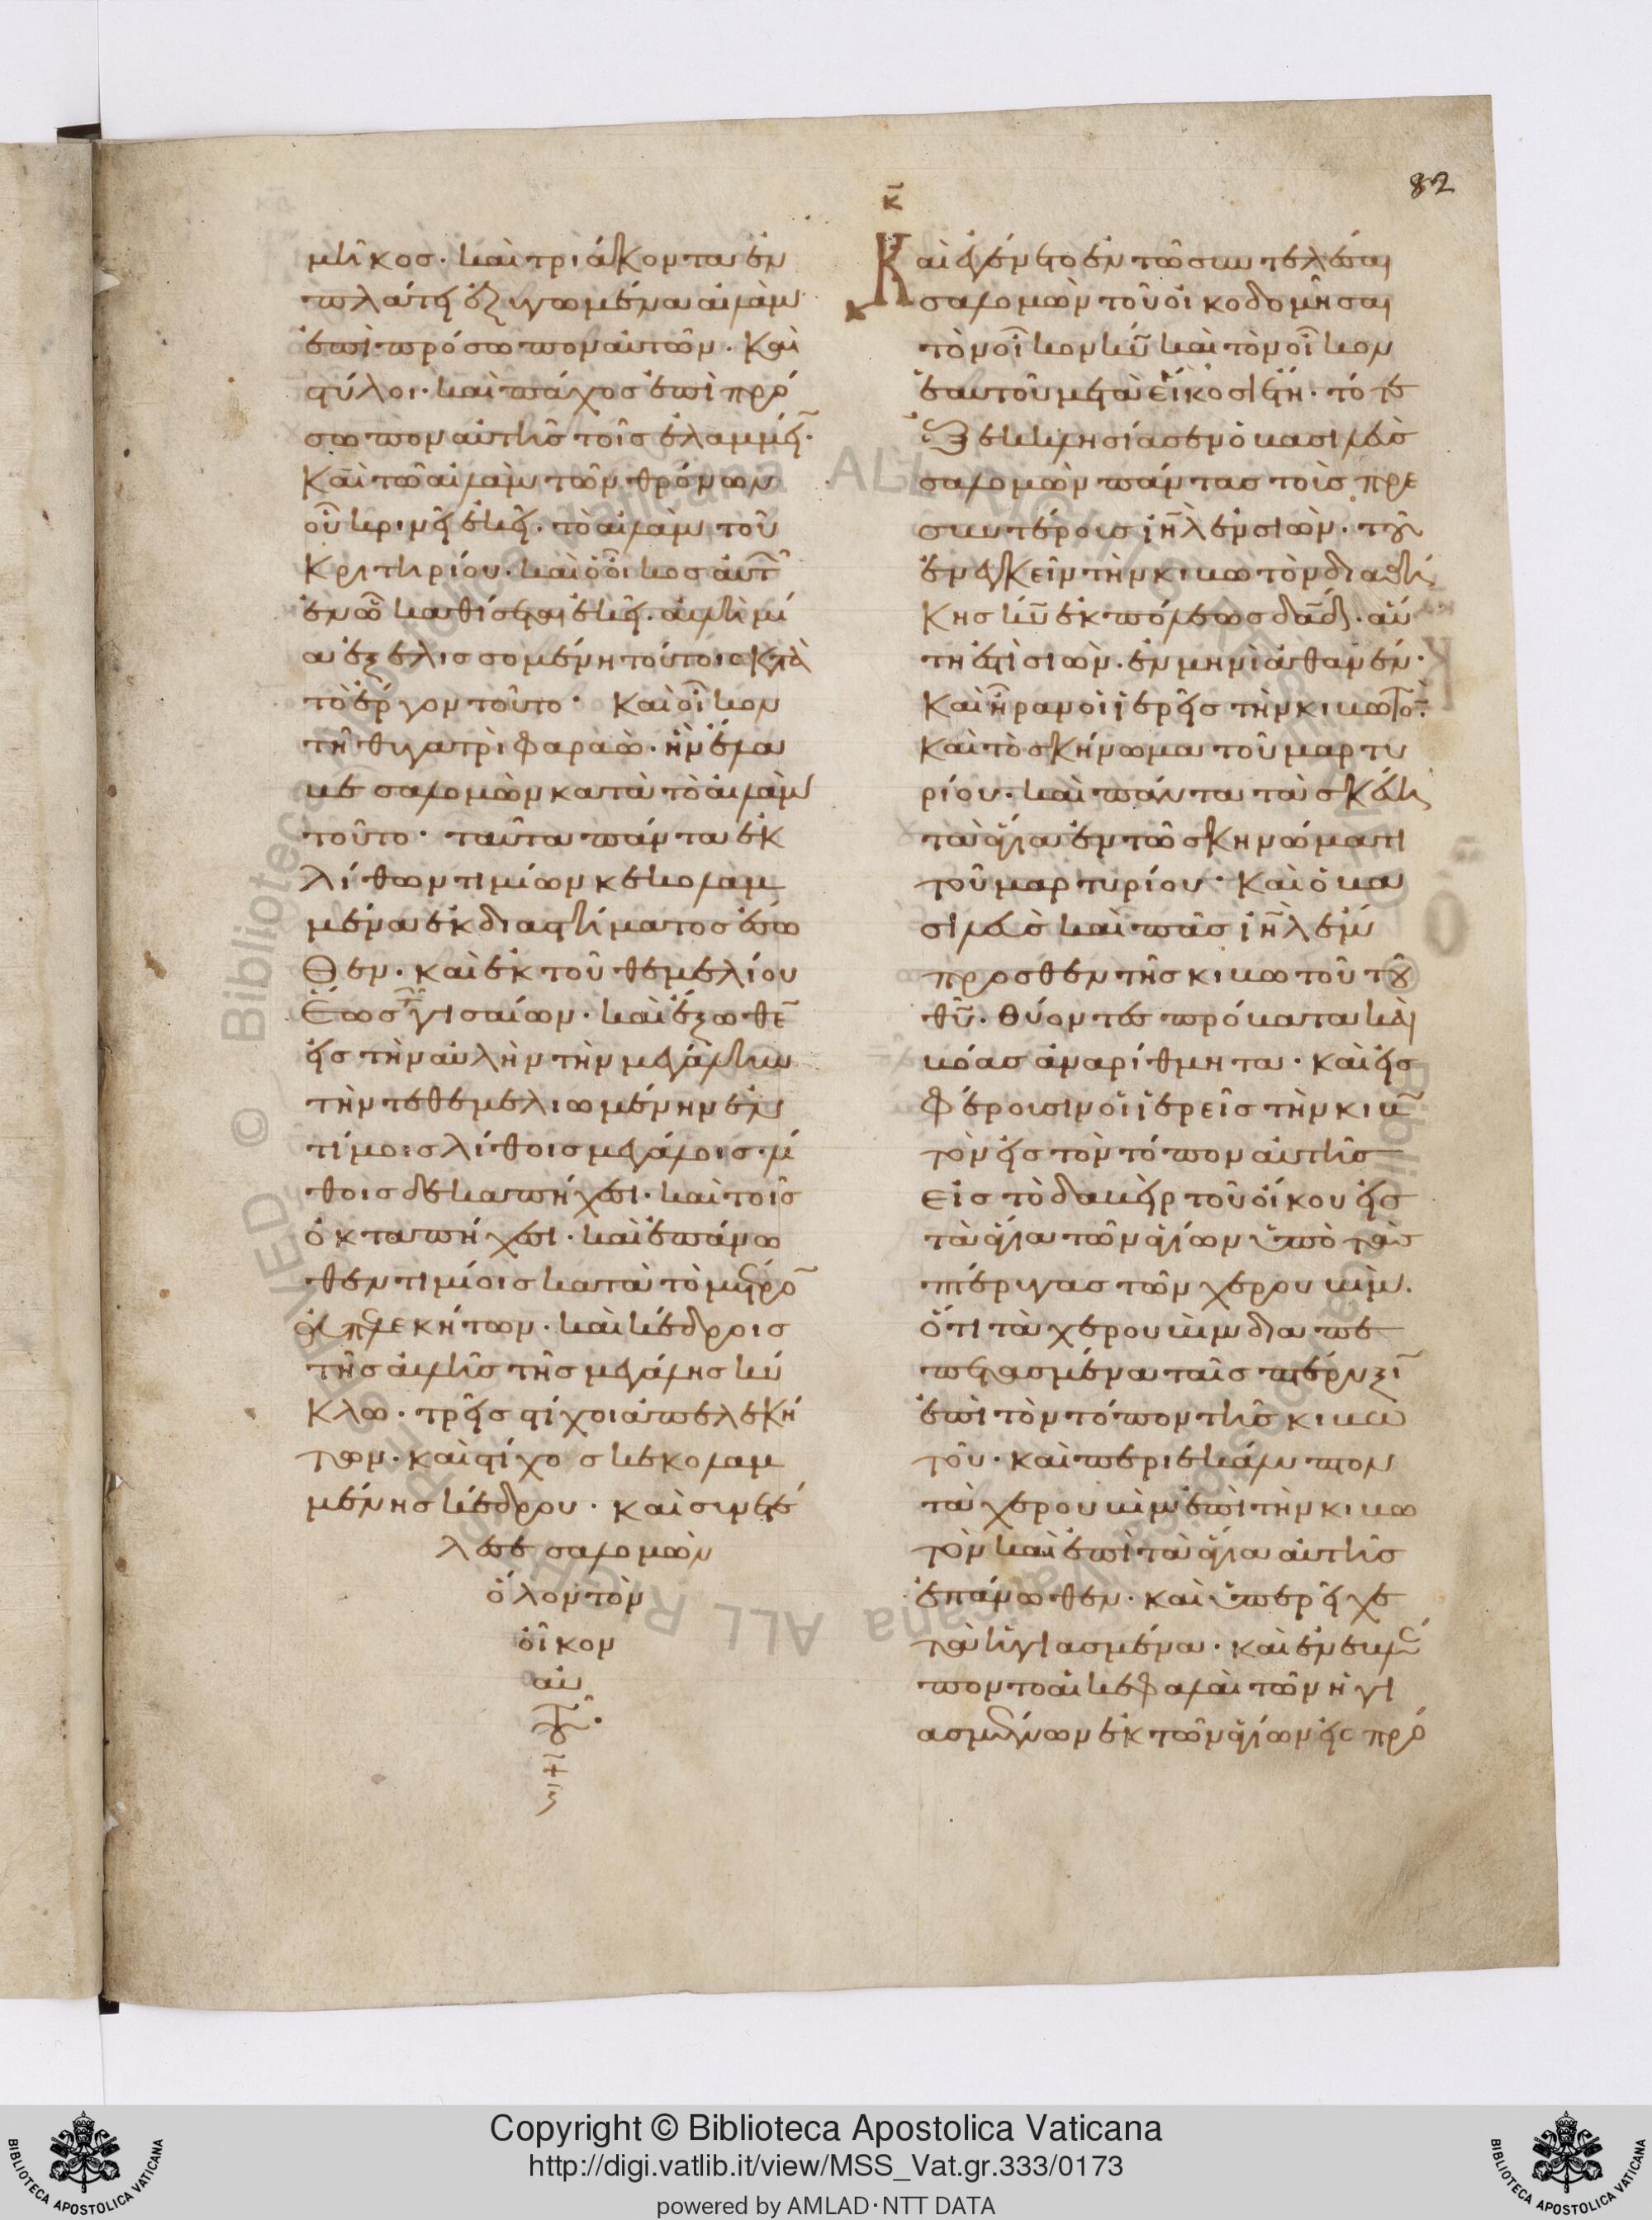 82
κ̅
μῆκος· καὶ τριάκοντα ἐν
πλάτει ἐζυγωμένα αἰλὰμ
ἐπὶ πρόσωπον αὐτῶν. Καὶ
στύλοι· καὶ πάχος ἐπὶ πρό
σωπον αὐτῆς τοῖς ἐλαμμεί̅·
Καὶ τῶ αἰλὰμ τῶν θρόνων
οὗ κρινεῖ ἐκεῖ. τὸ αἰλὰμ τοῦ
Κριτηρίου. καὶ ὁ οἶκος αὐτῶ
ἐν ὧ καθίσεται ἐκεῖ. αὐλὴ μί
α ἐξελισσομένη τούτοις κατὰ
τὸ ἔργον τοῦτο· Καὶ οἶκον
τῆ θυγατρὶ Φαραὼ. ἣν ἔλα
βε σαλομὼν κατὰ τὸ αἰλὰμ
τοῦτο· ταῦτα πάντα ἐκ
λίθων τιμίων κεκολαμ
μένα ἐκ διαστήματος ἔσω
Θεν. καὶ ἐκ τοῦ θεμελίου
Ἕως τῶν γισαίων. καὶ ἔξωθε̅
εἰς τὴν αὐλὴν τὴν μεγάλην
τὴν τεθεμελιωμένην ἐν
τίμοις λίθοις μεγάλοις· λί
θοις δεκαπήχεσι. καὶ τοῖς
ὀκταπήχεσι. καὶ ἐπάνω
θεν τιμίοις κατὰ τὸ μέτρο̅
ἀπελεκήτων. καὶ κέδροις
τῆς αὐλῆς τῆς μεγάλης κύ
Κλω. τρεῖς στίχοι ἀπελεκή
των. καὶ στίχος κεκολαμ
μένης κέδρου. καὶ συνετέ
λεσε σαλομὼν
ὅλον τὸν
οἶκον
αὐ
τοῦ·
Καὶ ἐγένετο ἐν τῶ συντελέσαι
σαλομὼν τοῦ οἰκοδομῆσαι
τὸν οἶκον κυ̅ καὶ τὸν οἶκον
ἑαυτοῦ μετὰ εἴκοσι ἔτη. τότε
ἐξεκκλησίασεν ὁ βασιλεὺς
σαλομὼν πάντας τοὺς πρε
σβυτέρους ιη̅λ ἐν σιὼν. τοῦ
ἐνεγκεῖν τὴν κιβωτὸν διαθή
Κης κυ̅ ἐκ πόλεως δα̅δ. αὕ
τη ἐστὶ σιὼν. ἐν μηνὶ ἀθανεὶν·
Καὶ ἦραν οἱ ἱερεῖς τὴν κιβωτὸ̅·
Καὶ τὸ σκήνωμα τοῦ μαρτυ
ρίου. καὶ πάντα τὰ σκεύη
τὰ ἅγια ἐν τῶ σκηνώματι
τοῦ μαρτυρίου· Καὶ ὁ βα
σιλεὺς καὶ πᾶς ιη̅λ ἐν
προσθεν τῆς κιβωτοῦ τοῦ
θυ̅. Θύοντες πρόβατα καὶ
βόας ἀναρίθμητα. Καὶ εἰς
Φέρουσιν οἱ ἱερεῖς τὴν κιβω
τὸν εἰς τὸν τόπον αὐτῆς
εἰς τὸ δαβεὶρ τοῦ οἴκου εἰς
τὰ ἅγια τῶν ἁγίων ὑπὸ τὰς
πτέρυγας τῶν χερουβὶμ.
ὅτι τὰ χερουβὶμ διαπε
πετασμένα ταῖς πτέρυξι̅
ἐπὶ τὸν τόπον τῆς κιβω
τοῦ. καὶ περιεκάλυπτον
τὰ χερουβὶμ ἐπὶ τὴν κιβω
τὸν καὶ ἐπὶ τὰ ἅγια αὐτῆς
ἐπάνωθεν. καὶ ὑπερεῖχε
τὰ ἡγιασμένα. καὶ ἐνεβλέ
ποντο αἱ κεφαλαὶ τῶν ἡγι
ασμένων ἐκ τῶν ἁγίων εἰς πρό
Copyright © Biblioteca Apostolica Vaticana
http://digi.vatlib.it/view/MSS_Vat.gr.333/0173
powered by AMLAD·NTT DATA
BIBLIOTECA APOSTOLICA VATICANA
BIBLIOTECA APOSTOLICA VATICANA